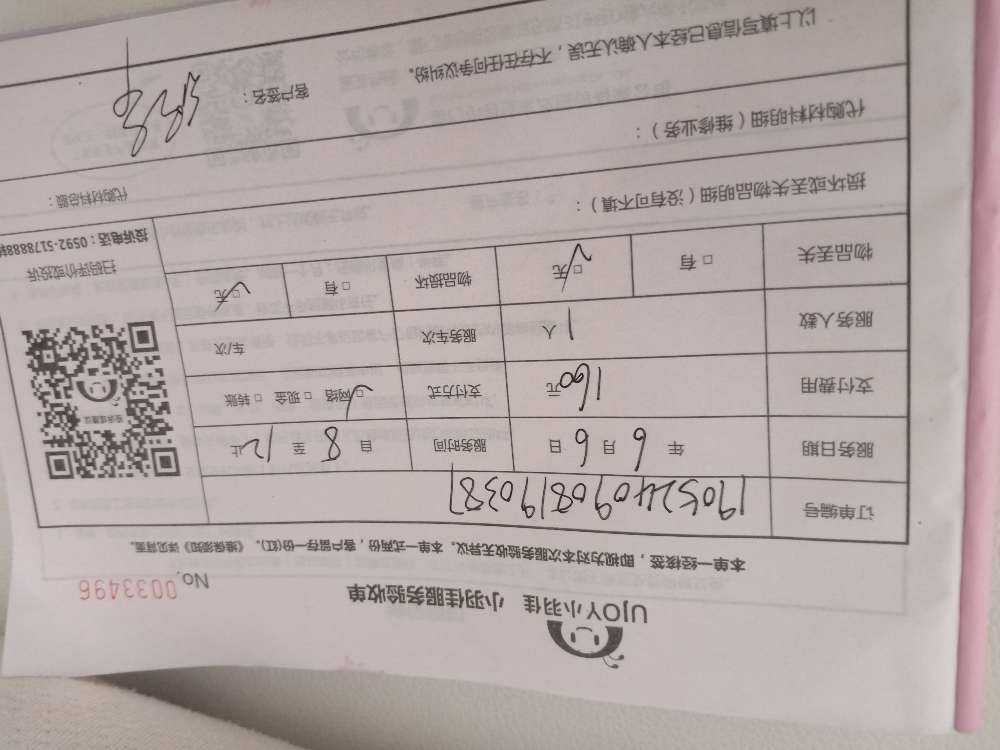 UJOY小羽佳 小羽佳服务验收单
No. 0033496
本单一经核签，即视为对本次服务验收无异议。本单一式两份，客户留存一份(红)。《维保须知》详见背面。
订单编号 1905240908190387
服务日期 年 6 月 6 日 服务时间 自 8 至 12 止
支付费用 160 元 支付方式 □网络 □现金 □转账
服务人数 1 人 服务车次 车/次
物品丢失 □有 □无 物品损坏 □有 □无
扫码评价或投诉
投诉电话：0592-5178888转
损坏或丢失物品明细（没有可不填）：
代购材料明细（维修业务）：
代购材料总额：
以上填写信息已经本人确认无误，不存在任何争议纠纷。
客户签名：